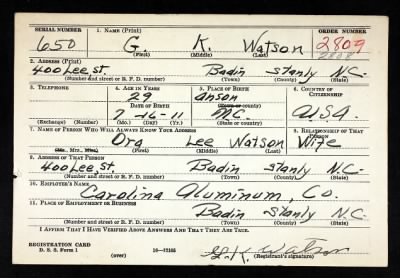 SERIAL NUMBER 1. NAME (Print) ORDER NUMBER
650 G. K. Watson 2809
(First) (Middle) (Last)
2. ADDRESS (Print)
400 Lee St. Badin Stanly N.C.
(Number and street or R. F. D. number) (Town) (County) (State)
3. TELEPHONE 4. AGE IN YEARS 5. PLACE OF BIRTH 6. COUNTRY OF CITIZENSHIP
29 Anson
DATE OF BIRTH (Town or county)
2-16-11 N.C. U.S.A.
(Exchange) (Number) (Mo.) (Day) (Yr.) (State or country)
7. NAME OF PERSON WHO WILL ALWAYS KNOW YOUR ADDRESS 8. RELATIONSHIP OF THAT PERSON
Ora Lee Watson Wife
(Mr., Mrs., Miss) (First) (Middle) (Last)
9. ADDRESS OF THAT PERSON
400 Lee St. Badin Stanly N.C.
(Number and street or R. F. D. number) (Town) (County) (State)
10. EMPLOYER'S NAME
Carolina Aluminum, Co.
11. PLACE OF EMPLOYMENT OR BUSINESS
Badin Stanly N.C.
(Number and street or R. F. D. number) (Town) (County) (State)
I AFFIRM THAT I HAVE VERIFIED ABOVE ANSWERS AND THAT THEY ARE TRUE.
REGISTRATION CARD
D. S. S. Form 1 (over) G. K. Watson
(Registrant's signature)